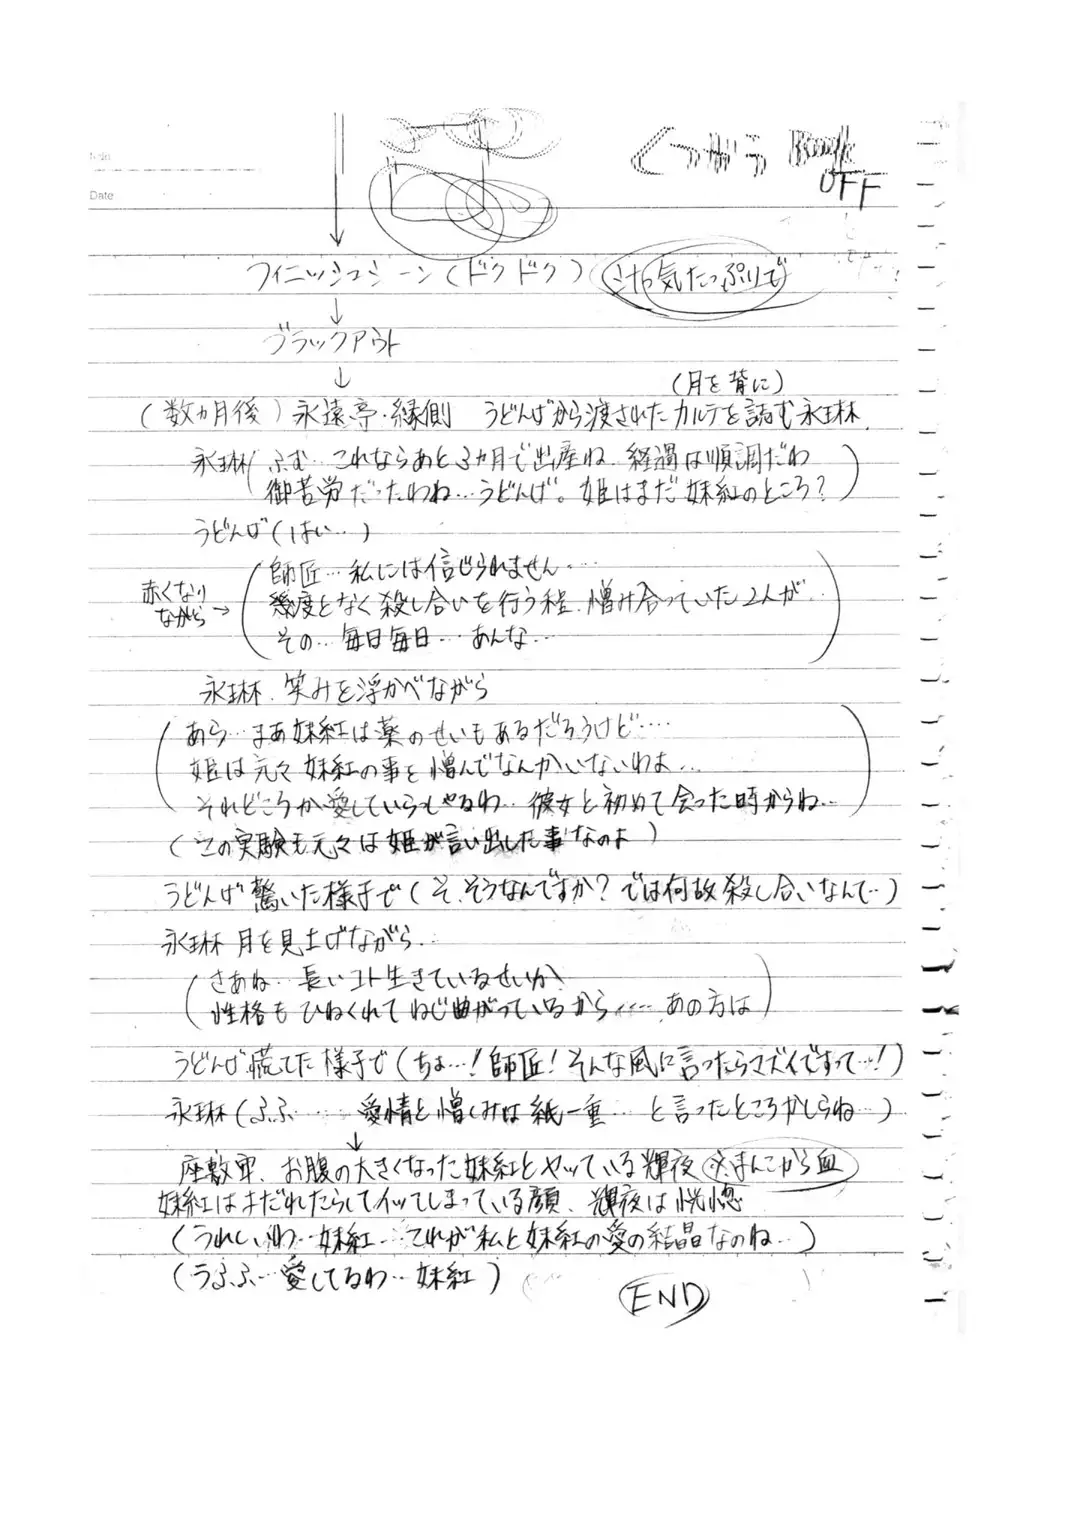 No.
Date
くつがう Book
OFF
フィニッシュシーン(ドクドク)
気たっぷりで
↓
ブラックアウト
↓
(月を背に)
(数ヵ月後)永遠亭・縁側 うどんげから渡されたカルテを読む永琳
永琳(ふむ…これならあと3ヵ月で出産ね 経過は順調だわ
御苦労だったわね…うどんげ。姫はまだ妹紅のところ?)
うどんげ(はい…)
赤くなり
ながら→
(師匠…私には信じられません…
幾度となく殺し合いを行う程、憎み合っていた2人が…
その…毎日毎日…あんな…)
永琳、笑みを浮かべながら
(あら…まあ妹紅は薬のせいもあるだろうけど…
姫は元々妹紅の事を憎んでなんかいないわよ…
それどころか愛していらっしゃるわ…彼女と初めて会った時からね…)
(この実験も元々は姫が言い出した事なのよ)
うどんげ驚いた様子で(そ、そうなんですか?では何故殺し合いなんて…)
永琳 月を見上げながら…
(さあね…長いコト生きているせいか、
性格もひねくれてねじ曲がっているから……あの方は)
うどんげ、慌てた様子で(ちょ…!師匠!そんな風に言ったらマズイですって…!)
永琳(ふふ……愛情と憎しみは紙一重…と言ったところかしらね…)
↓
座敷牢、お腹の大きくなった妹紅とヤッている輝夜 ※まんこから血
妹紅はまだれたらしてイッてしまっている顔、輝夜は恍惚
(うれしいわ…妹紅…これが私と妹紅の愛の結晶なのね…)
(うふふ…愛してるわ…妹紅)
END